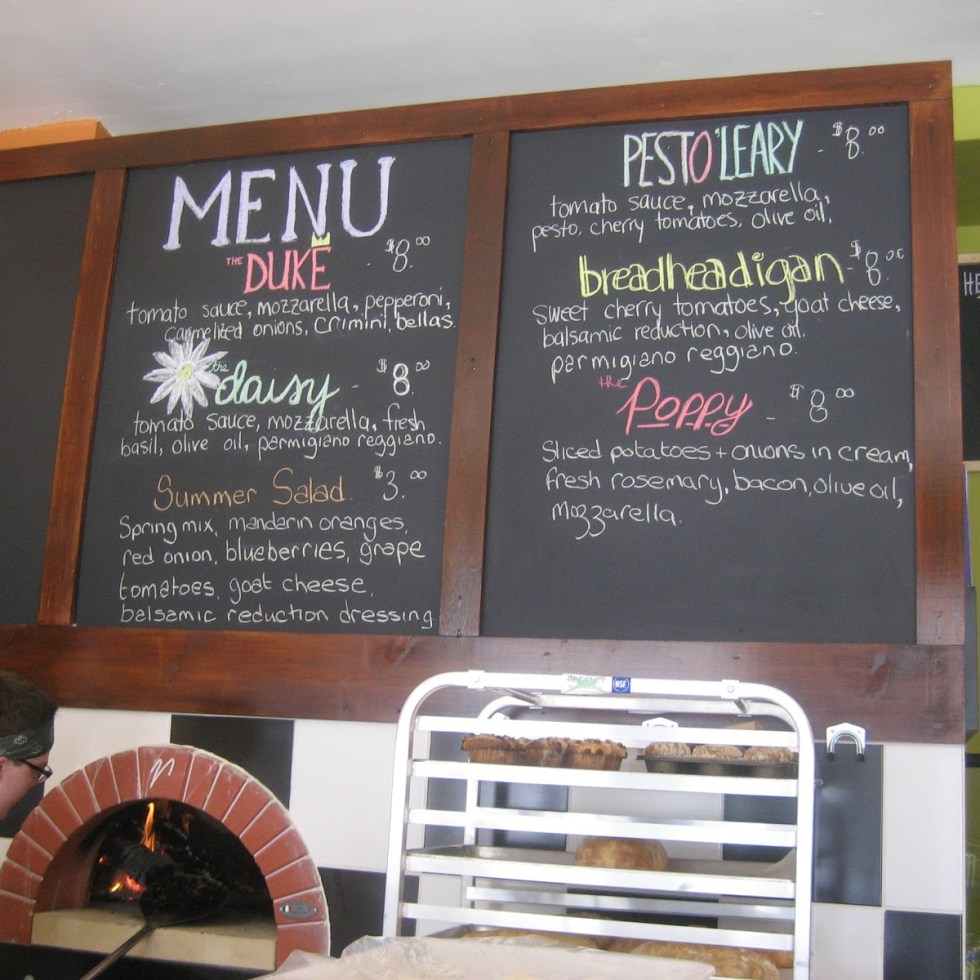 MENU
THE DUKE - $8.00
tomato sauce, mozzarella, pepperoni,
carmelized onions, crimini, bellas.
the daisy - $8.00
tomato sauce, mozzarella, fresh
basil, olive oil, parmigiano reggiano.
Summer Salad $3.00
Spring mix, mandarin oranges,
red onion, blueberries, grape
tomatoes, goat cheese,
balsamic reduction dressing
PESTO'LEARY - $8.00
tomato sauce, mozzarella,
pesto, cherry tomatoes, olive oil,
breadheadigan - $8.00
sweet cherry tomatoes, goat cheese,
balsamic reduction, olive oil.
parmigiano reggiano.
THE Poppy - $8.00
Sliced potatoes + onions in cream,
fresh rosemary, bacon, olive oil,
mozzarella.
HE
NSF